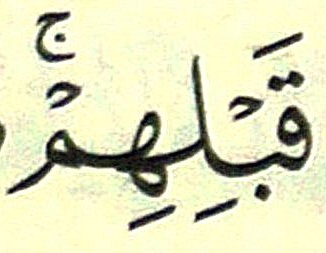 قَبْلِهِمْۚ